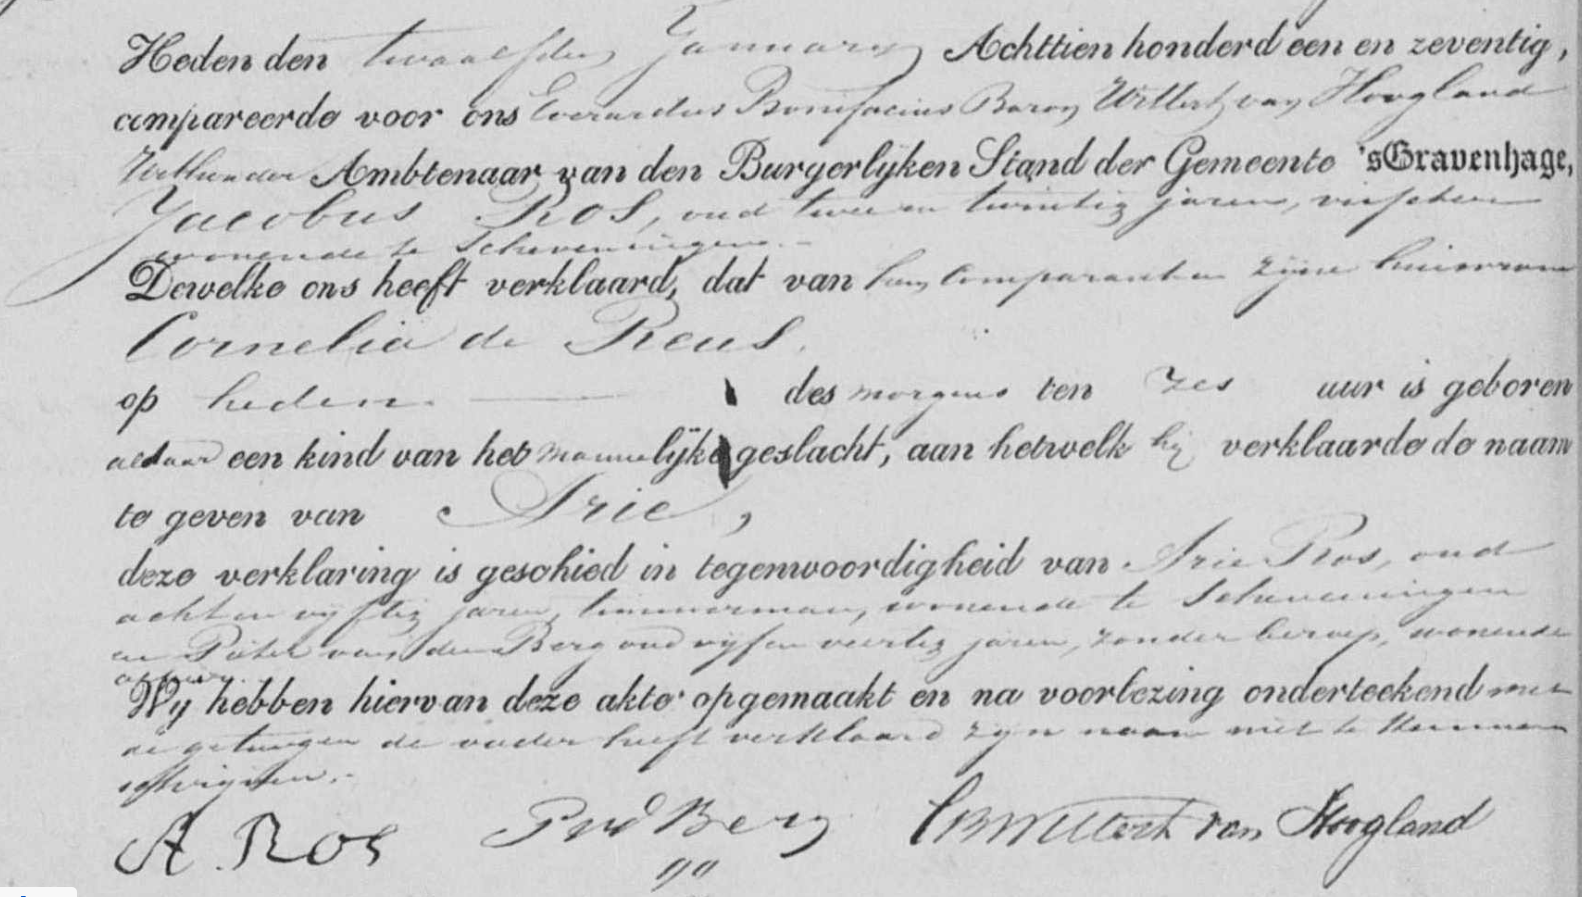 Heden den twaalfden January Achttien honderd een en zeventig,
compareerde voor ons Everardus Bonifacius Baron Wittert van Hoogland
Wethouder Ambtenaar van den Burgerlijken Stand der Gemeente 'sGravenhage,
Jacobus Ros, oud twee en twintig jaren, visscher
wonende te Scheveningen
Dewelke ons heeft verklaard, dat van hem Comparant en zijne huisvrouw
Cornelia de Reus,
op heden des morgens ten zes uur is geboren
aldaar een kind van het mannelijke geslacht, aan hetwelk hij verklaarde de naam
te geven van Arie,
deze verklaring is geschied in tegenwoordigheid van Arie Ros, oud
acht en vijftig jaren, timmerman, wonende te Scheveningen
en Pieter van den Berg oud vijf en veertig jaren, zonder beroep, wonende
aldaar.
Wy hebben hiervan deze akte opgemaakt en na voorlezing onderteekend met
de getuigen de vader heeft verklaard zijn naam niet te kunnen
schrijven.
A. Ros P vd Berg EBWittert van Hoogland